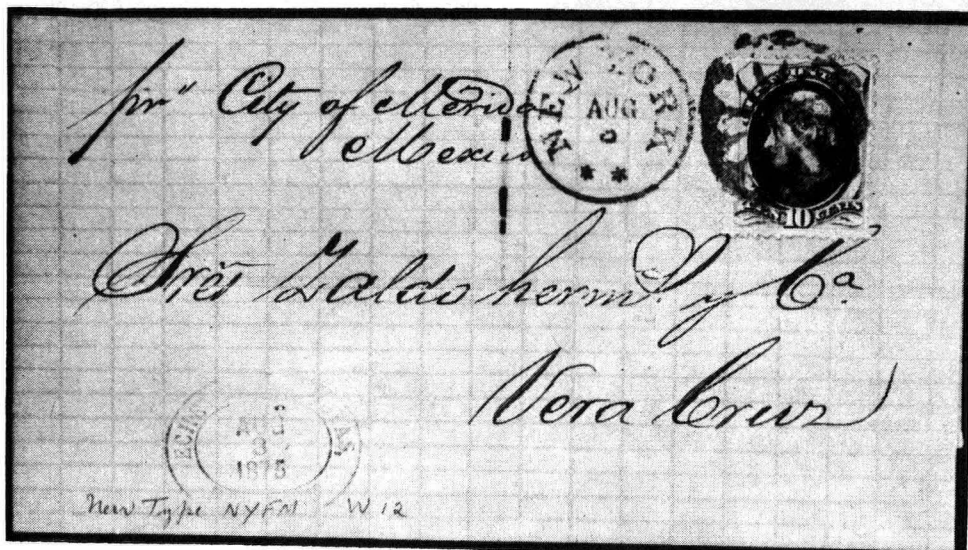 pr "City of Merida
Mexico
NEW YORK
AUG
* *
10
Sres Zaldo hermš. y Cª
Vera Cruz
AUG
1875
New Type NYFM W 12